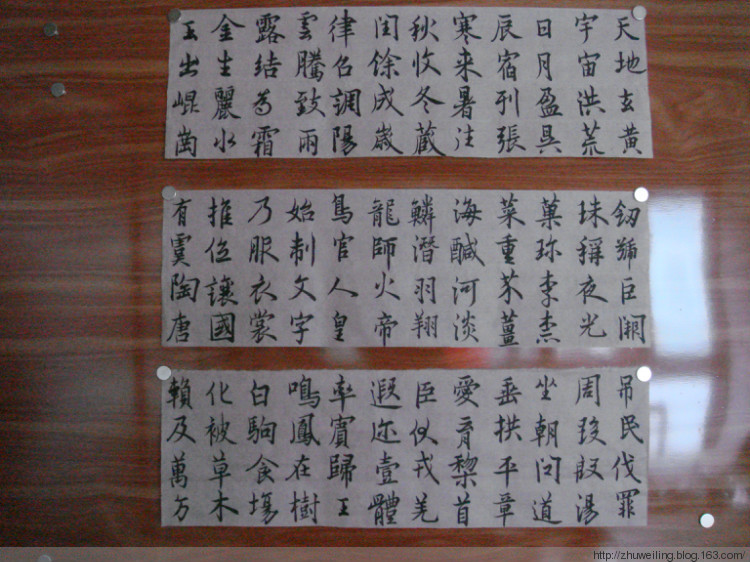 天地玄黄
宇宙洪荒
日月盈昃
辰宿列張
寒来暑往
秋收冬藏
闰餘成歲
律吕調陽
雲騰致雨
露结為霜
金生麗水
玉出崐崗
劒號巨闕
珠稱夜光
菓珎李柰
菜重芥薑
海醎河淡
鱗潛羽翔
龍師火帝
鳥官人皇
始制文字
乃服衣裳
推位讓國
有虞陶唐
吊民伐罪
周發殷湯
坐朝問道
垂拱平章
愛育黎首
臣伏戎羌
遐迩壹體
率賓歸王
鳴鳳在樹
白駒食塲
化被草木
賴及萬方
http://zhuweiling.blog.163.com/